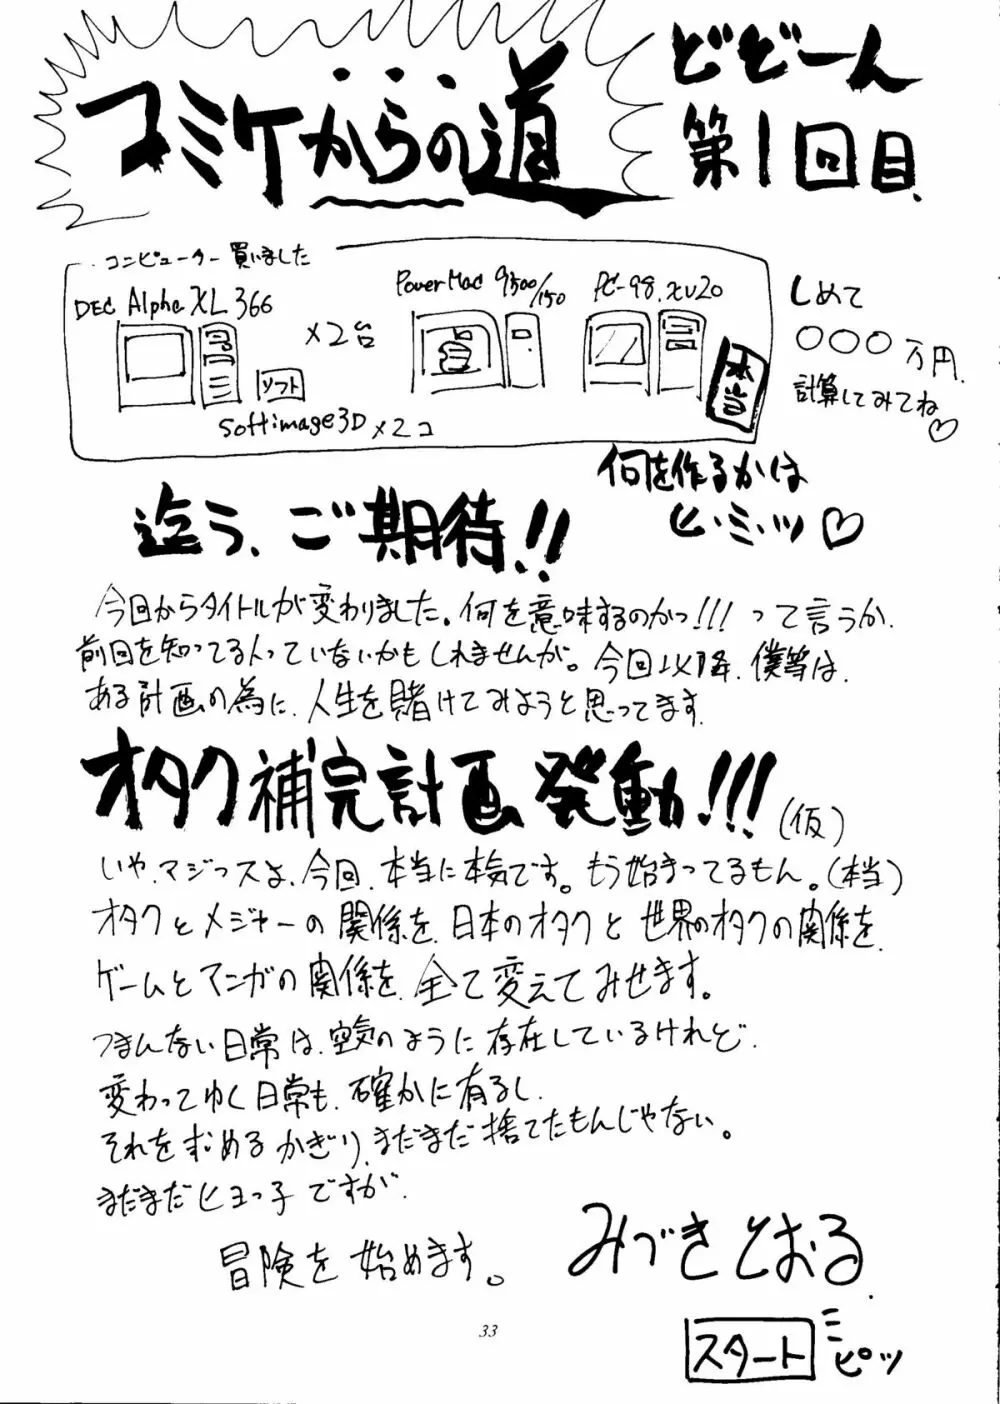 コミケからの道
どどーん
第1回目
コンピューター買いました
DEC Alpha XL 366
×2台
ソフト
Softimage3D ×2コ
PowerMac 9500/150
PC-98.XV20
本当
しめて
○○○万円.
計算してみてね♡
何を作るかは
ヒ・ミ・ツ♡
迄う、ご期待!!
今回からタイトルが変わりました。何を意味するのかっ!!!って言うか.
前回を知ってる人っていないかもしれませんが。今回以降、僕等は.
ある計画の為に、人生を賭けてみようと思ってます.
オタク補完計画発動!!!(仮)
いや、マジっスよ、今回、本当に本気です。もう始まってるもん。(本当)
オタクとメジャーの関係を、日本のオタクと世界のオタクの関係を、
ゲームとマンガの関係を、全て変えてみせます。
つまんない日常は、空気のように存在しているけれど、
変わってゆく日常も、確かに有るし、
それを求めるかぎり、まだまだ捨てたもんじゃない。
まだまだヒヨっ子ですが、
冒険を始めます。
みづきとおる.
スタート
ピッ
33